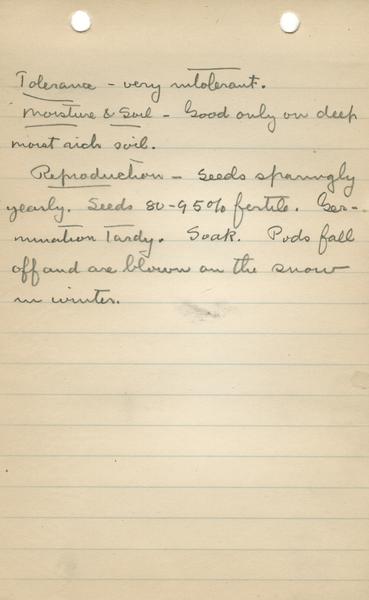 Tolerance - very intolerant.
Moisture & Soil - Good only on deep
moist rich soil.
Reproduction - Seeds sparingly
yearly. Seeds 80-95% fertile. Ger-
mination Tardy. Soak. Pods fall
off and are blown on the snow
in winter.